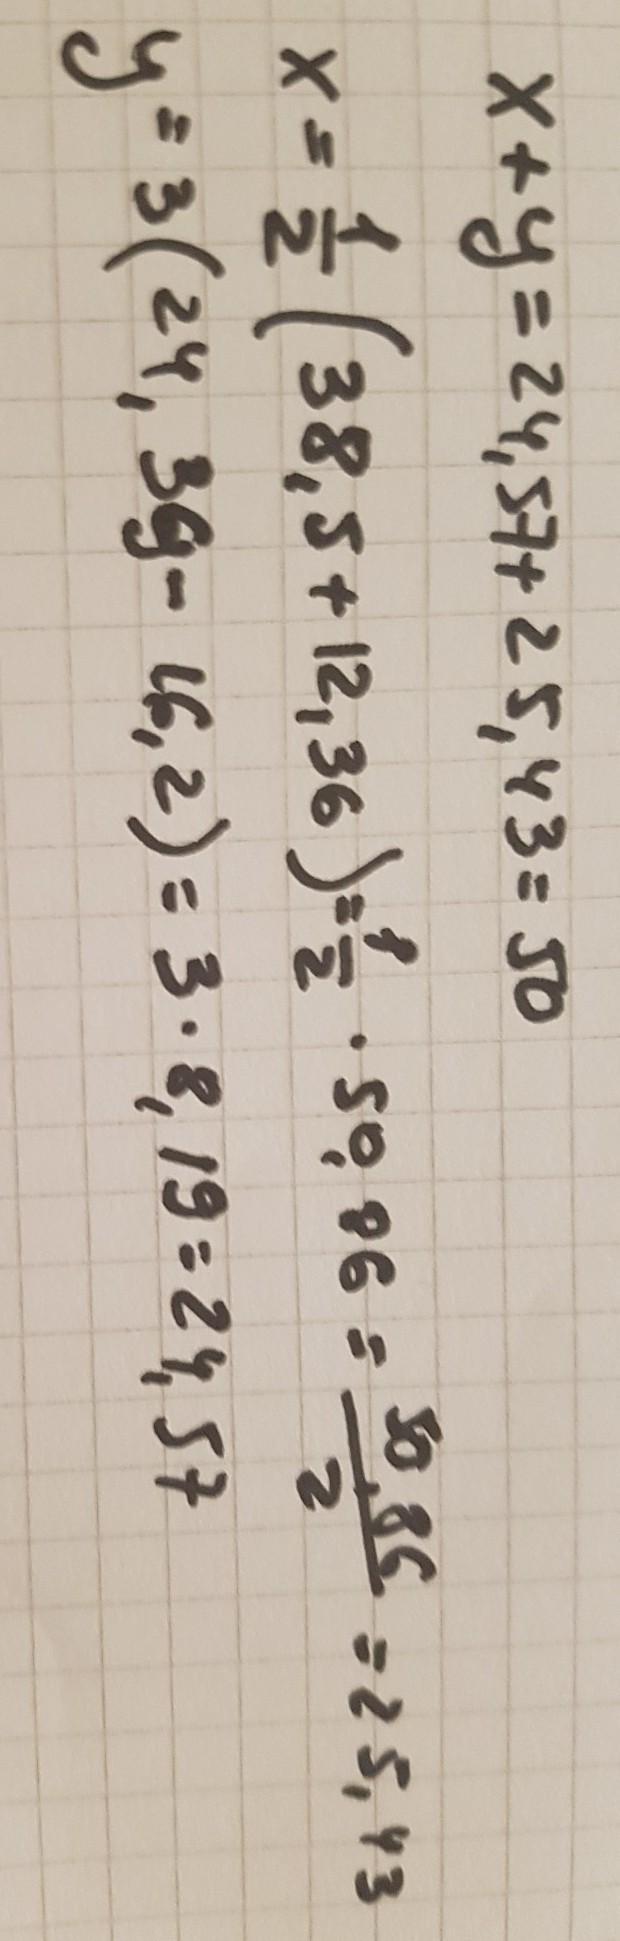 x + y = 24,57 + 25,43 = 50
x = 1/2 (38,5 + 12,36) = 1/2 · 50,86 = 50,86/2 = 25,43
y = 3(24,39 - 16,2) = 3 · 8,19 = 24,57